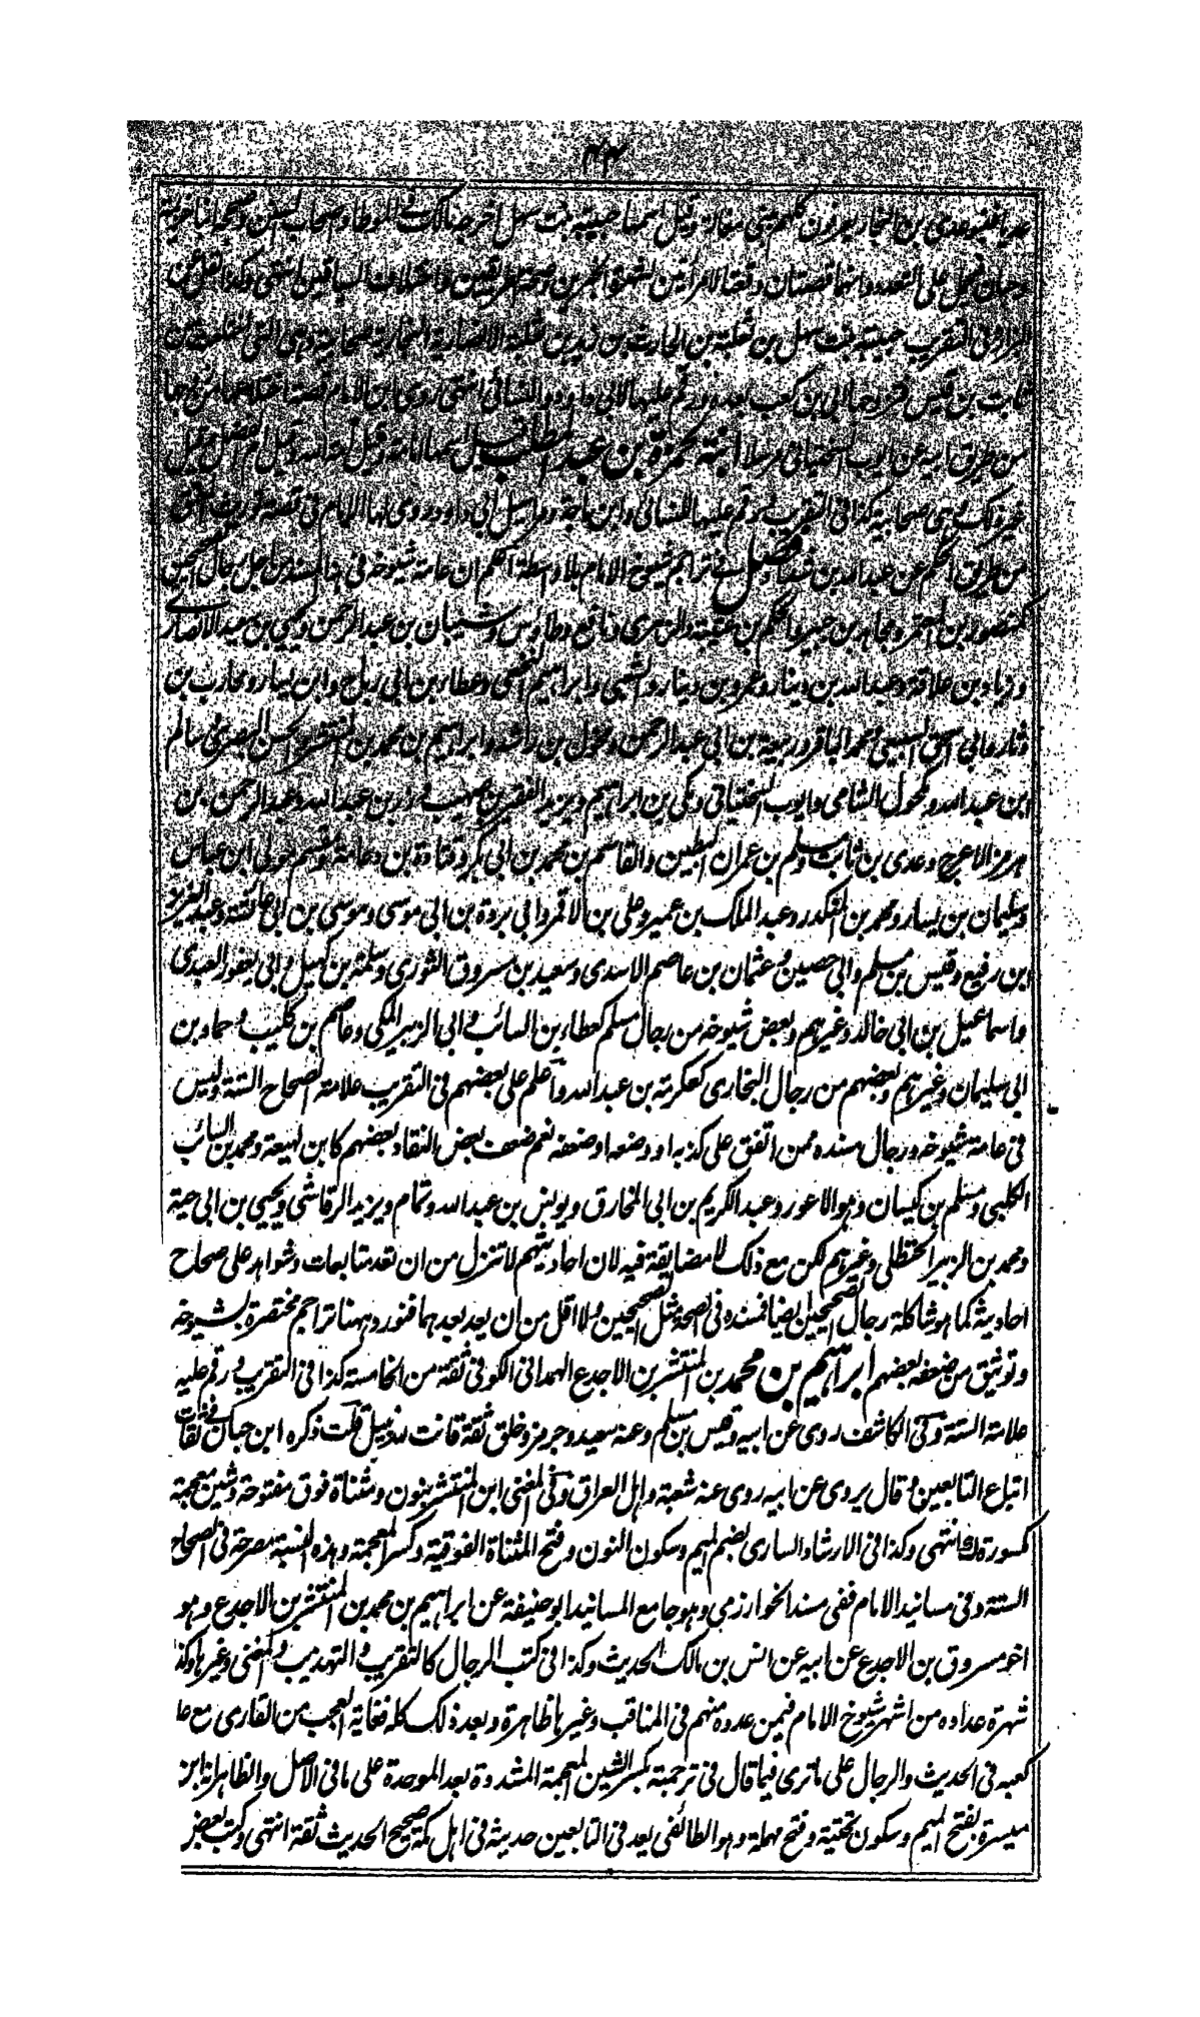 ٤٤
عديا فبنو عدى بن النجار يعرفون كلهم ببنى مغالة وقيل اسمها حبيبة بنت سهل اخرجه مالك فى الموطا واصحاب السنن وصححه ابنا خزيمة
وحبان فحمل على التعدد وانهما قصتان وقعتا لامرأتين لشهرة الخبرين وصحة الطريقين واختلاف السياقين انتهى وكذا نقل عن
البزار وفى التقريب حبيبة بنت سهل بن ثعلبة بن الحارث بن زيد بن ثعلبة الانصارية النجارية صحابية وهى التى اختلعت من
ثابت بن قيس فتزوجها ابى بن كعب بعده ورقم عليها لابى داود والنسائى انتهى روى ابن الامام قصة اختلاعها من زوجها
من طريق ابيه عن ايوب السختيانى مرسلا ابنة حمزة بن عبد المطلب قيل اسمها امامة وقيل امة الله وقيل ام الفضل وقيل
غير ذلك وهى صحابية كذا فى التقريب ورقم عليها للنسائى وابن ماجة ومراسيل ابى داود وروى لها الامام فى قصة توريث المعتق
من طريق الحكم عن عبد الله بن شداد فصل فى تراجم شيوخ الامام بلا واسطة اعلم ان عامة شيوخه فى هذا المسند من اجل رجال الصحيحين
كمنصور بن المعتمر ومجاهد بن جبير والحكم بن عتيبة والزهرى ونافع وطاوس وشيبان بن عبد الرحمن ويحيى بن سعيد الانصارى
وزياد بن علاقة وعبد الله بن دينار وعمرو بن دينار والشعبى وابراهيم النخعى وعطاء بن ابى رباح وابن يسار ومحارب بن
دثار وابى اسحق السبيعى ومحمد الباقر وربيعة بن ابى عبد الرحمن ومخول بن راشد وابراهيم بن محمد بن المنتشر والحسن البصرى وسالم
ابن عبد الله ومكحول الشامى وايوب السختيانى ومكى بن ابراهيم ويزيد الفقير بن صهيب وزر بن عبد الله وعبد الرحمن بن
هرمز الاعرج وعدى بن ثابت ومسلم بن عمران البطين والقاسم بن محمد بن ابى بكر وقتادة بن دعامة ومقسم مولى ابن عباس
وسليمان بن يسار ومحمد بن المنكدر وعبد الملك بن عمير وعلى بن الاقمر وابى بردة بن ابى موسى وموسى بن ابى عائشة وعبد العزيز
ابن رفيع وقيس بن مسلم وابى حصين وعثمان بن عاصم الاسدى وسعيد بن مسروق الثورى وسلمة بن كهيل وابى يعفور العبدى
واسماعيل بن ابى خالد وغيرهم وبعض شيوخه من رجال مسلم كعطاء بن السائب وابى الزبير المكى وعاصم بن كليب وحماد بن
ابى سليمان وغيرهم وبعضهم من رجال البخارى كعكرمة بن عبد الله واعلم على بعضهم فى التقريب علامة الصحاح الستة وليس
فى عامة شيوخه ورجال مسنده ممن اتفق على كذبه او وضعه او ضعفه نعم ضعف بعض النقاد بعضهم كابن لهيعة ومحمد بن السائب
الكلبى ومسلم بن كيسان وهو الاعور وعبد الكريم بن ابى المخارق ويونس بن عبد الله وتمام ويزيد الرقاشى ويحيى بن ابى حية
ومحمد بن الزبير الحنظلى وغيرهم لكن مع ذلك لا مضايقة فيه لان احاديثهم لا تنزل من ان تعد متابعات وشواهد على صحاح
احاديثه كما هو شاكلة رجال الصحيحين ايضا فمسنده فى الصحة مثل الصحيحين ولا اقل من ان يعد بعدهما فنورد ههنا تراجم مختصرة لشيوخه
وتوثيق من ضعفه بعضهم ابراهيم بن محمد بن المنتشر بن الاجدع الهمدانى الكوفى ثقة من الخامسة كذا فى التقريب ورقم عليه
علامة الستة وفى الكاشف روى عن ابيه وقيس بن مسلم وعنه سعيد وجرمز وخلق ثقة قانت لله نبيل قلت ذكره ابن حبان فى ثقات
اتباع التابعين وقال يروى عن ابيه روى عنه شعبة واهل العراق وفى المغنى ابن المنتشر بنون ومثناة فوق مفتوحة وشين معجمة
مكسورة انتهى وكذا فى الارشاد السارى بضم الميم وسكون النون وفتح المثناة الفوقية وكسر المعجمة وهذه النسبة مصرحة فى الصحاح
الستة وفى مسانيد الامام ففى مسند الخوارزمى وهو جامع المسانيد ابو حنيفة عن ابراهيم بن محمد بن المنتشر بن الاجدع وهو
اخو مسروق بن الاجدع عن ابيه عن انس بن مالك الحديث وكذا فى كتب الرجال كالتقريب والتهذيب والمغنى وغيرها وكذا
شهرة عداده من اشهر شيوخ الامام فيمن عدوه منهم فى المناقب وغيرها ظاهرة وبعد ذلك كله فغاية العجب من القارى مع علو
كعبه فى الحديث والرجال على ما ترى فيما قال فى ترجمته بكسر الشين المعجمة المشددة بعد الموحدة على ما فى الاصل والظاهر انه ابن
ميسرة بفتح الميم وسكون تحتية وفتح مهملة وهو الطائفى يعد فى التابعين حديثه فى اهل مكة صحيح الحديث ثقة انتهى وكتب بعض